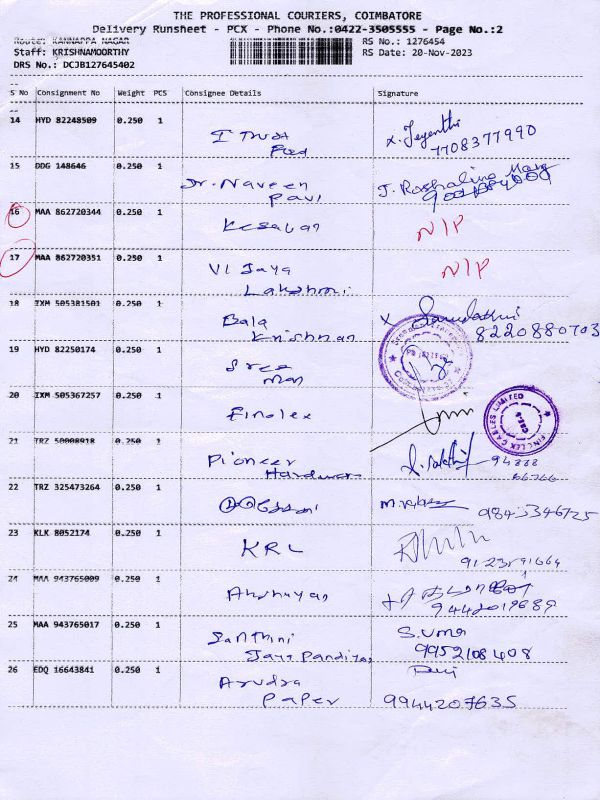 THE PROFESSIONAL COURIERS, COIMBATORE
Delivery Runsheet - PCX - Phone No.:0422-3505555 - Page No.:2
Route: KANNAPPA NAGAR
RS No.: 1276454
Staff: KRISHNAMOORTHY
RS Date: 20-Nov-2023
DRS No.: DCJB127645402
S No Consignment No Weight PCS Consignee Details Signature
14 HYD 82248509 0.250 1
7708377990
15 DDG 148646 0.250 1 Dr. Naveen
Paul
16 MAA 862720344 0.250 1 Kesavan N/P
17 MAA 862720351 0.250 1 Vijaya N/P
Lakshmi
18 IXM 505381501 0.250 1 Bala
Krishnan 8220880703
19 HYD 82250174 0.250 1 Sree
20 IXM 505367257 0.250 1 Finolex
FINOLEX CABLES LIMITED
21 TRZ 50008918 0.250 1 Pioneer
Hardware
22 TRZ 325473264 0.250 1
23 KLK 8052174 0.250 1 KRL
24 MAA 943765009 0.250 1
25 MAA 943765017 0.250 1 Santhini S. Uma
9952108408
26 EDQ 16643841 0.250 1 Arudra
Paper 9944207635